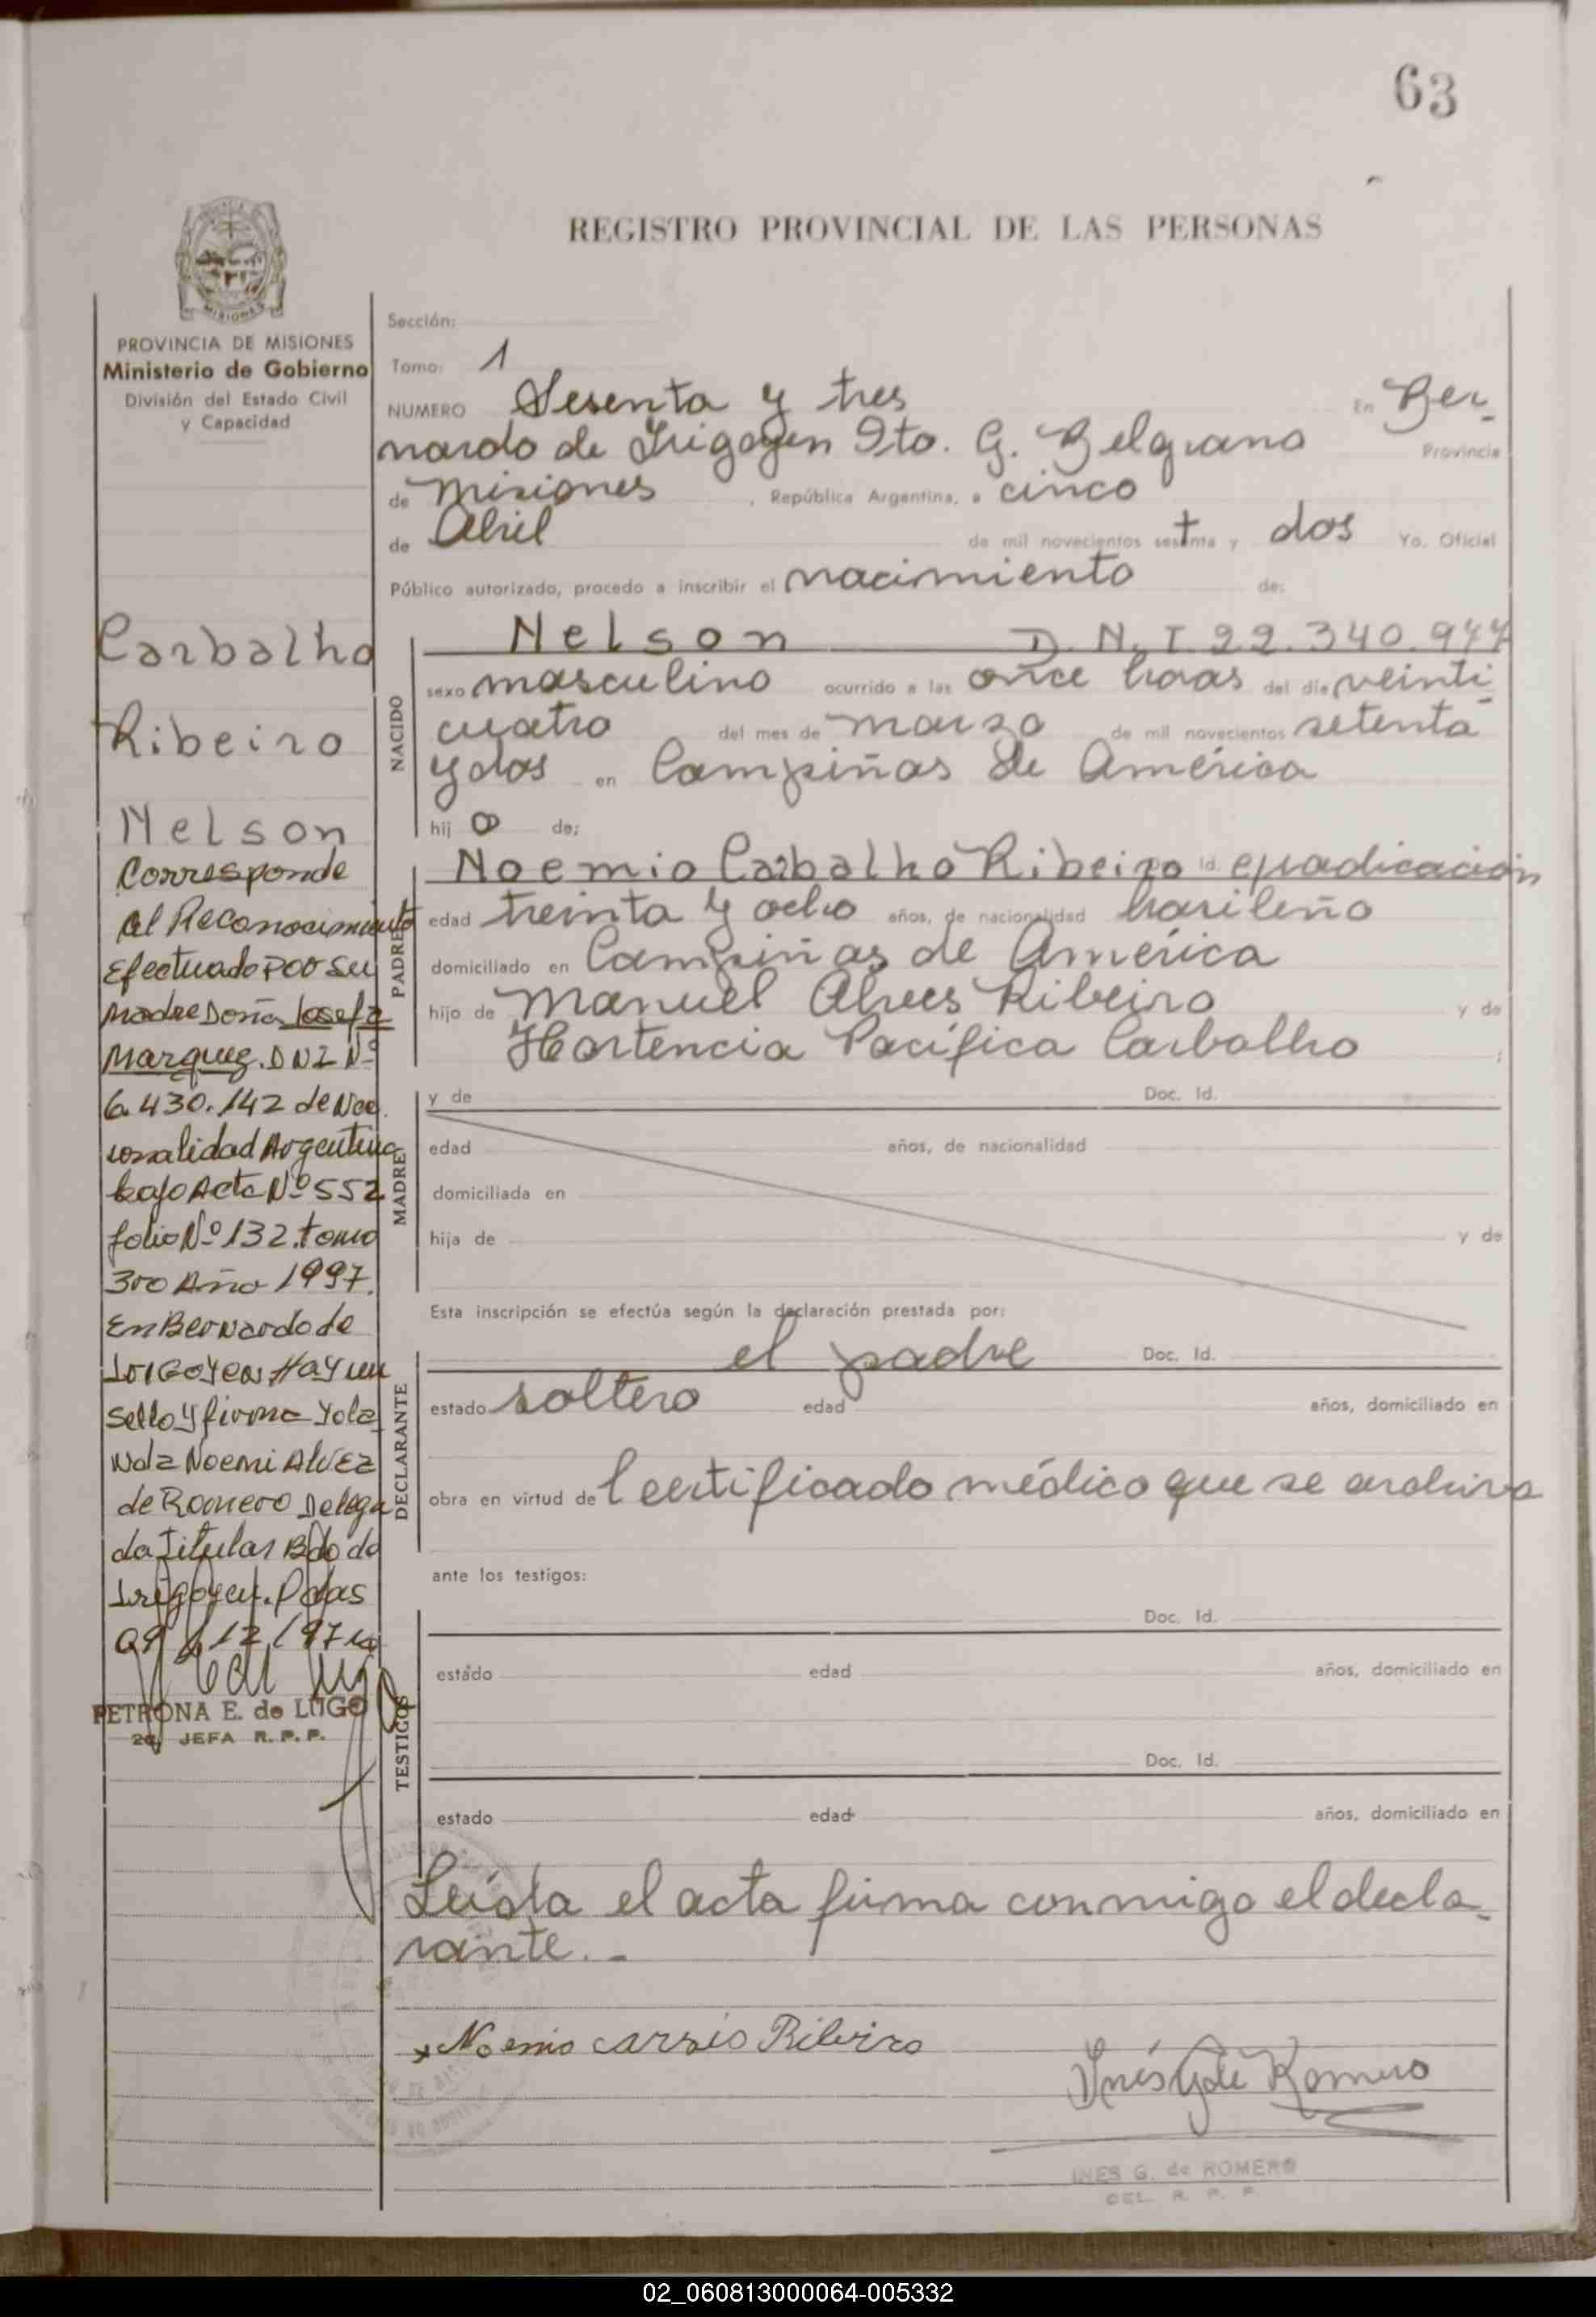 63
REGISTRO PROVINCIAL DE LAS PERSONAS
MISIONES
PROVINCIA DE MISIONES
Ministerio de Gobierno
División del Estado Civil
y Capacidad
Carbalho
Ribeiro
Nelson
Corresponde
al Reconocimiento
Efectuado Por su
Madre Doña Josefa
Marquez. DNI Nº
6.430.142 de Nac
ionalidad Argentina
bajo Acta Nº 552
folio Nº 132. tomo
3ro Año 1997.
En Bernardo de
Irigoyen Hay un
Sello y firma Yola
nda Noemi Alvez
de Romero Delega
da Titular Bdo de
Irigoyen. Pdas
09/12/97
PETRONA E. de LUGO
JEFA R. P. P.
Sección:
Tomo: 1
NUMERO Sesenta y tres En Ber-
nardo de Irigoyen Dto. G. Belgrano Provincia
de Misiones, República Argentina, a cinco
de Abril de mil novecientos setenta y dos Yo. Oficial
Público autorizado, procedo a inscribir el nacimiento de:
NACIDO
Nelson D. N. I 22.340.977
sexo masculino ocurrido a las once horas del día veinti-
cuatro del mes de marzo de mil novecientos setenta
y dos en Campiñas de América
hij o de:
PADRE
Noemio Carbalho Ribeiro Id. c/radicación
edad treinta y ocho años, de nacionalidad brasileño
domiciliado en Campiñas de América
hijo de Manuel Alves Ribeiro y de
Hortencia Pacífica Carbalho ;
MADRE
y de Doc. Id.
edad años, de nacionalidad
domiciliada en
hija de y de
Esta inscripción se efectúa según la declaración prestada por:
DECLARANTE
el padre Doc. Id.
estado soltero edad años, domiciliado en
obra en virtud de l certificado médico que se archiva
ante los testigos:
TESTIGOS
Doc. Id.
estado edad años, domiciliado en
Doc. Id.
estado edad años, domiciliado en
Leída el acta firma conmigo el decla-
rante.-
Noemio Ribeiro
Inés G de Romero
INES G. de ROMERO
DEL R. P. P.
02_060813000064-005332